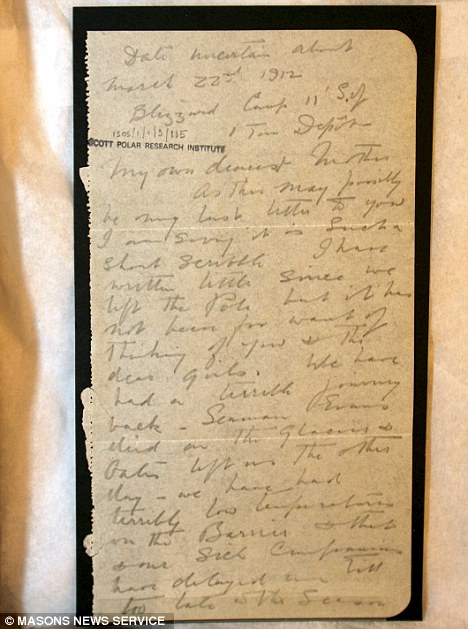 Date uncertain about
March 22nd 1912
Blizzard Camp 11' S. of
1 Ton Depôt
1505/1/1/3/115
SCOTT POLAR RESEARCH INSTITUTE
My own dearest Mother
As this may possibly
be my last letter to you
I am sorry it is such a
short scribble I have
written little since we
left the Pole but it has
not been for want of
thinking of you & the
dear girls. We have
had a terrible journey
back - Seaman Evans
died on the Glacier &
Oates left us the other
day - we have had
terribly low temperatures
on the Barrier & that
& our sick companions
have delayed us till
too late in the Season
© MASONS NEWS SERVICE